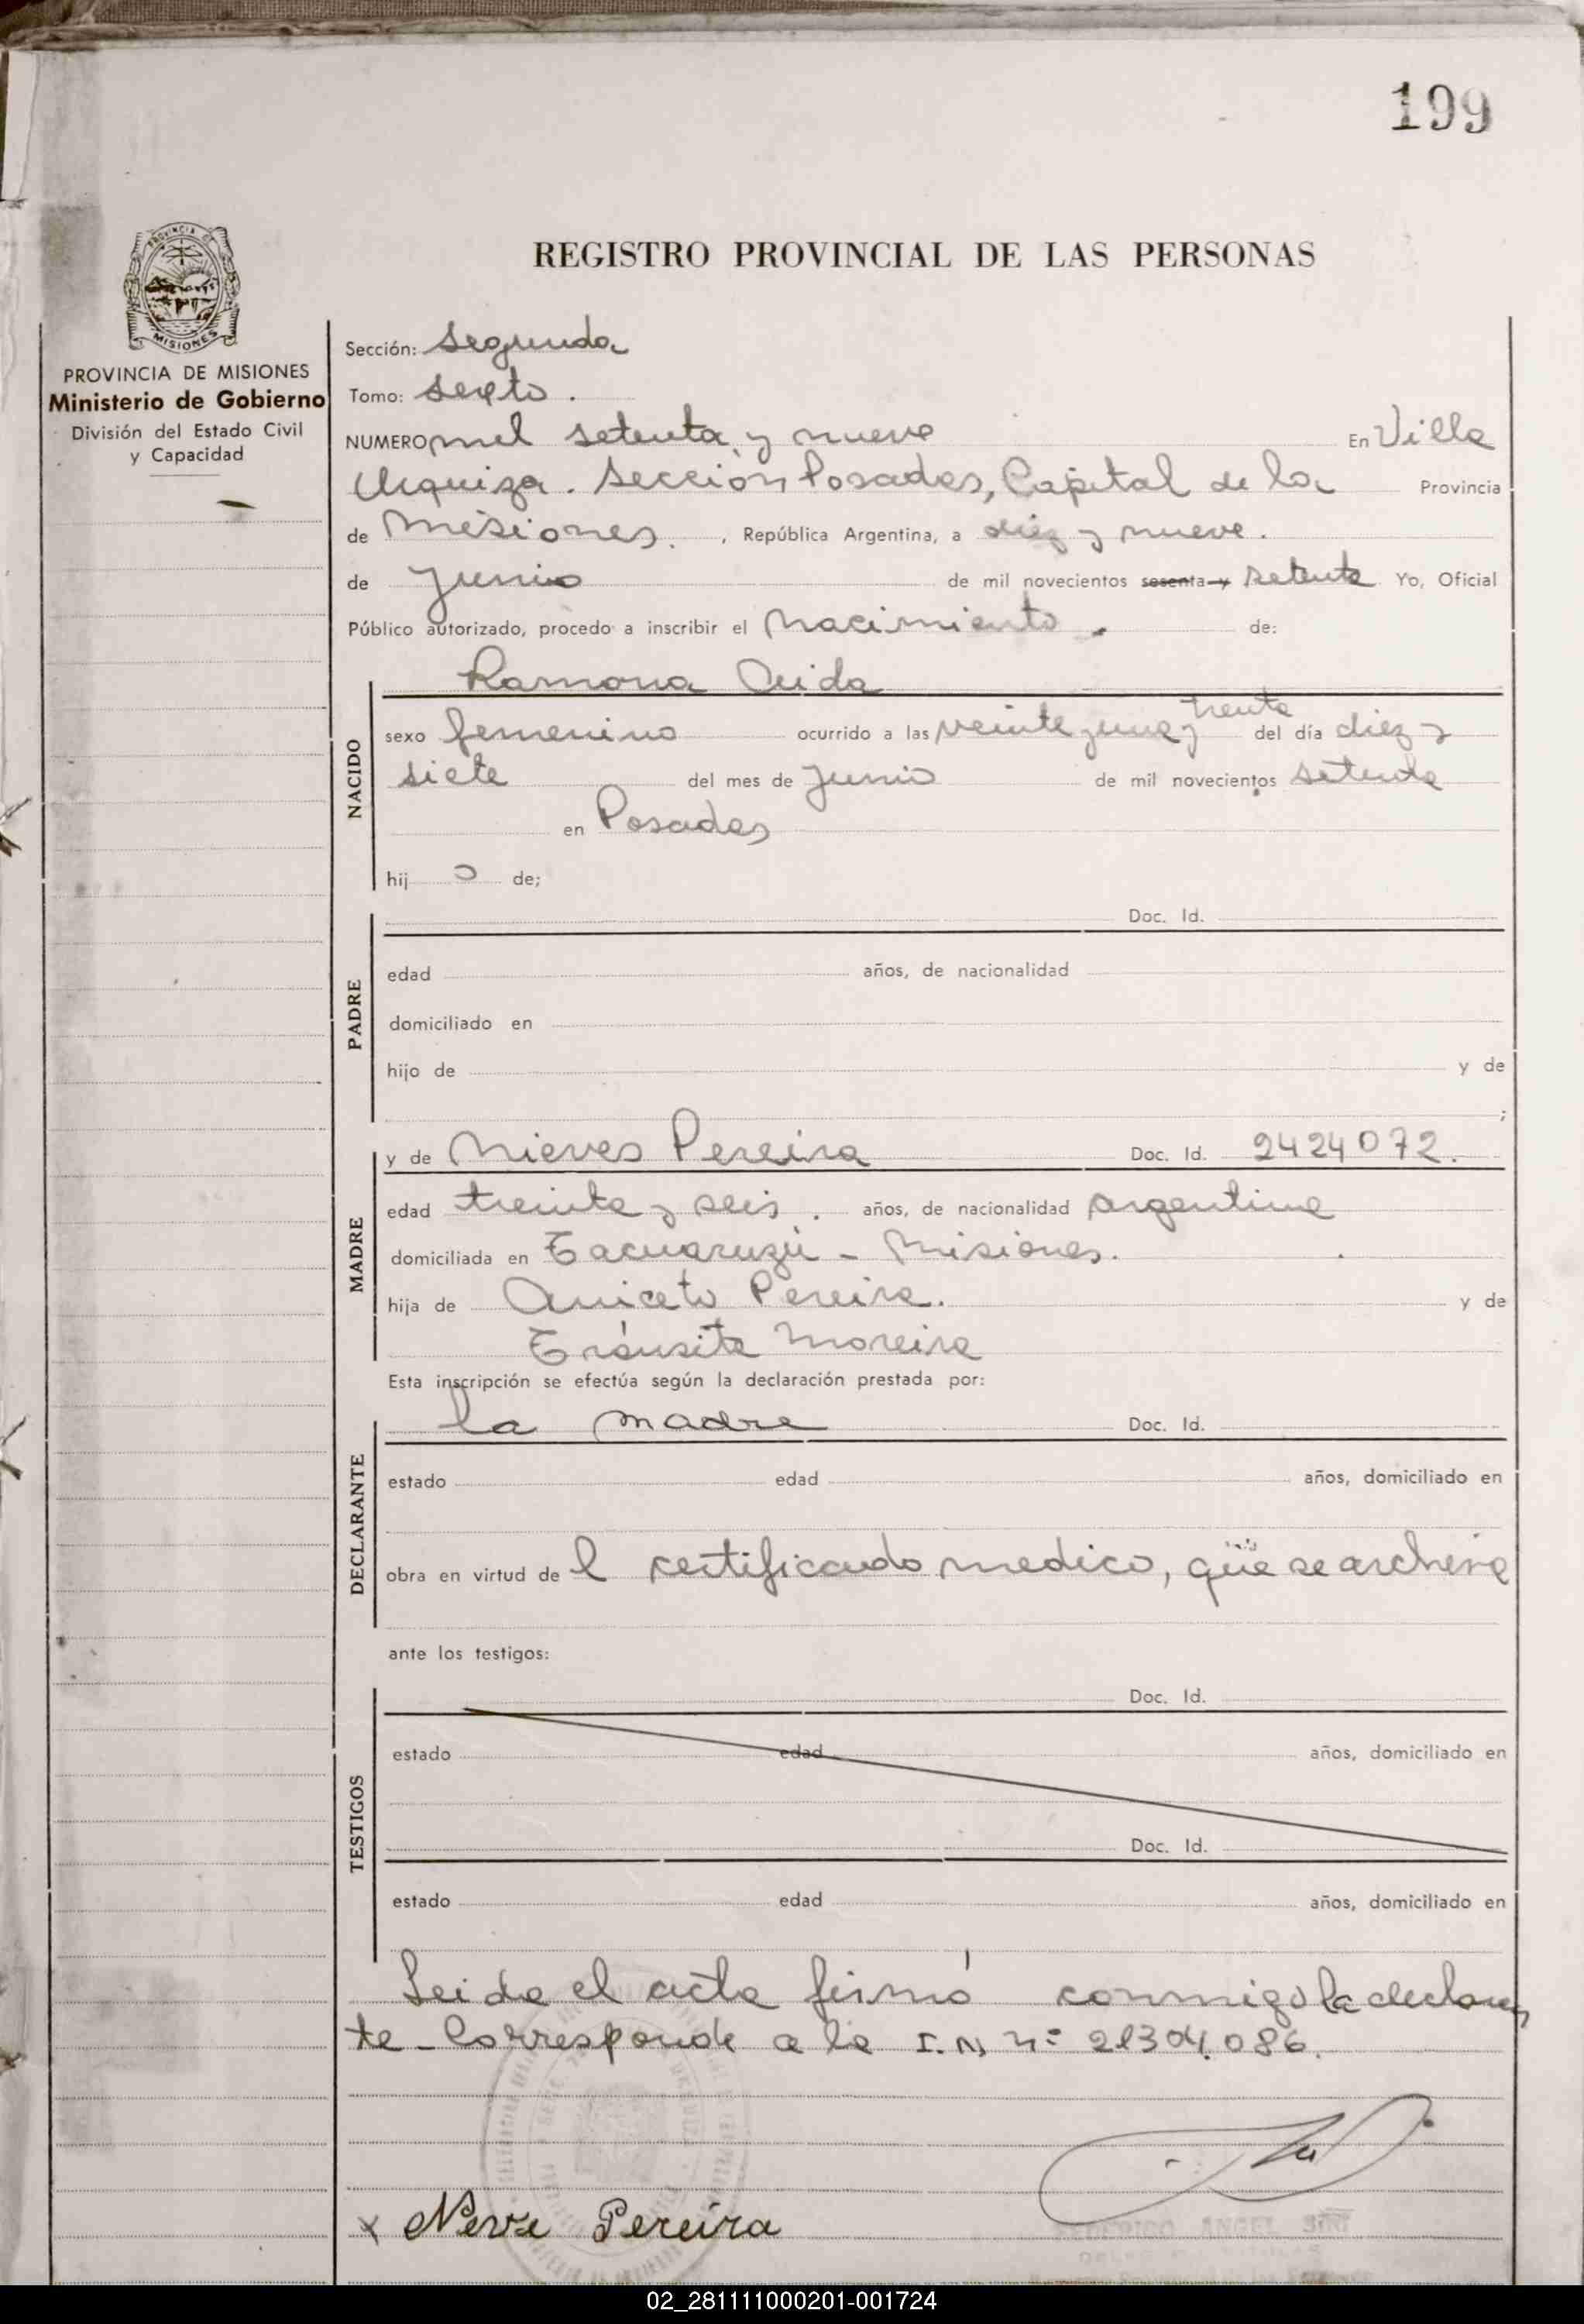 199
REGISTRO PROVINCIAL DE LAS PERSONAS
PROVINCIA DE MISIONES
Ministerio de Gobierno
División del Estado Civil
y Capacidad
Sección: Segunda
Tomo: Sexto.
NUMERO mil setenta y nueve En Villa
Urquiza. Sección Posadas, Capital de la Provincia
de Misiones. , República Argentina, a diez y nueve.
de Junio de mil novecientos sesenta y setenta Yo, Oficial
Público autorizado, procedo a inscribir el Nacimiento. de:
Ramona
NACIDO
treinta
sexo femenino ocurrido a las veinte y una y del día diez y
siete del mes de Junio de mil novecientos setenta
en Posadas
hij de;
PADRE
Doc. Id.
edad años, de nacionalidad
domiciliado en
hijo de y de
;
MADRE
y de Nieves Pereira Doc. Id. 2424072.
edad treinta y seis. años, de nacionalidad argentina
domiciliada en Tacuaruzú - Misiones.
hija de Aniceto Pereira. y de
Tránsita Moreira
Esta inscripción se efectúa según la declaración prestada por:
DECLARANTE
la madre Doc. Id.
estado edad años, domiciliado en
obra en virtud de l certificado medico, que se archiva
ante los testigos:
TESTIGOS
Doc. Id.
estado edad años, domiciliado en
Doc. Id.
estado edad años, domiciliado en
Leida el acta firmó conmigo la declaran
te - Corresponde a la I.N nº 21304.086.
x Neve Pereira
ANGEL
02_281111000201-001724